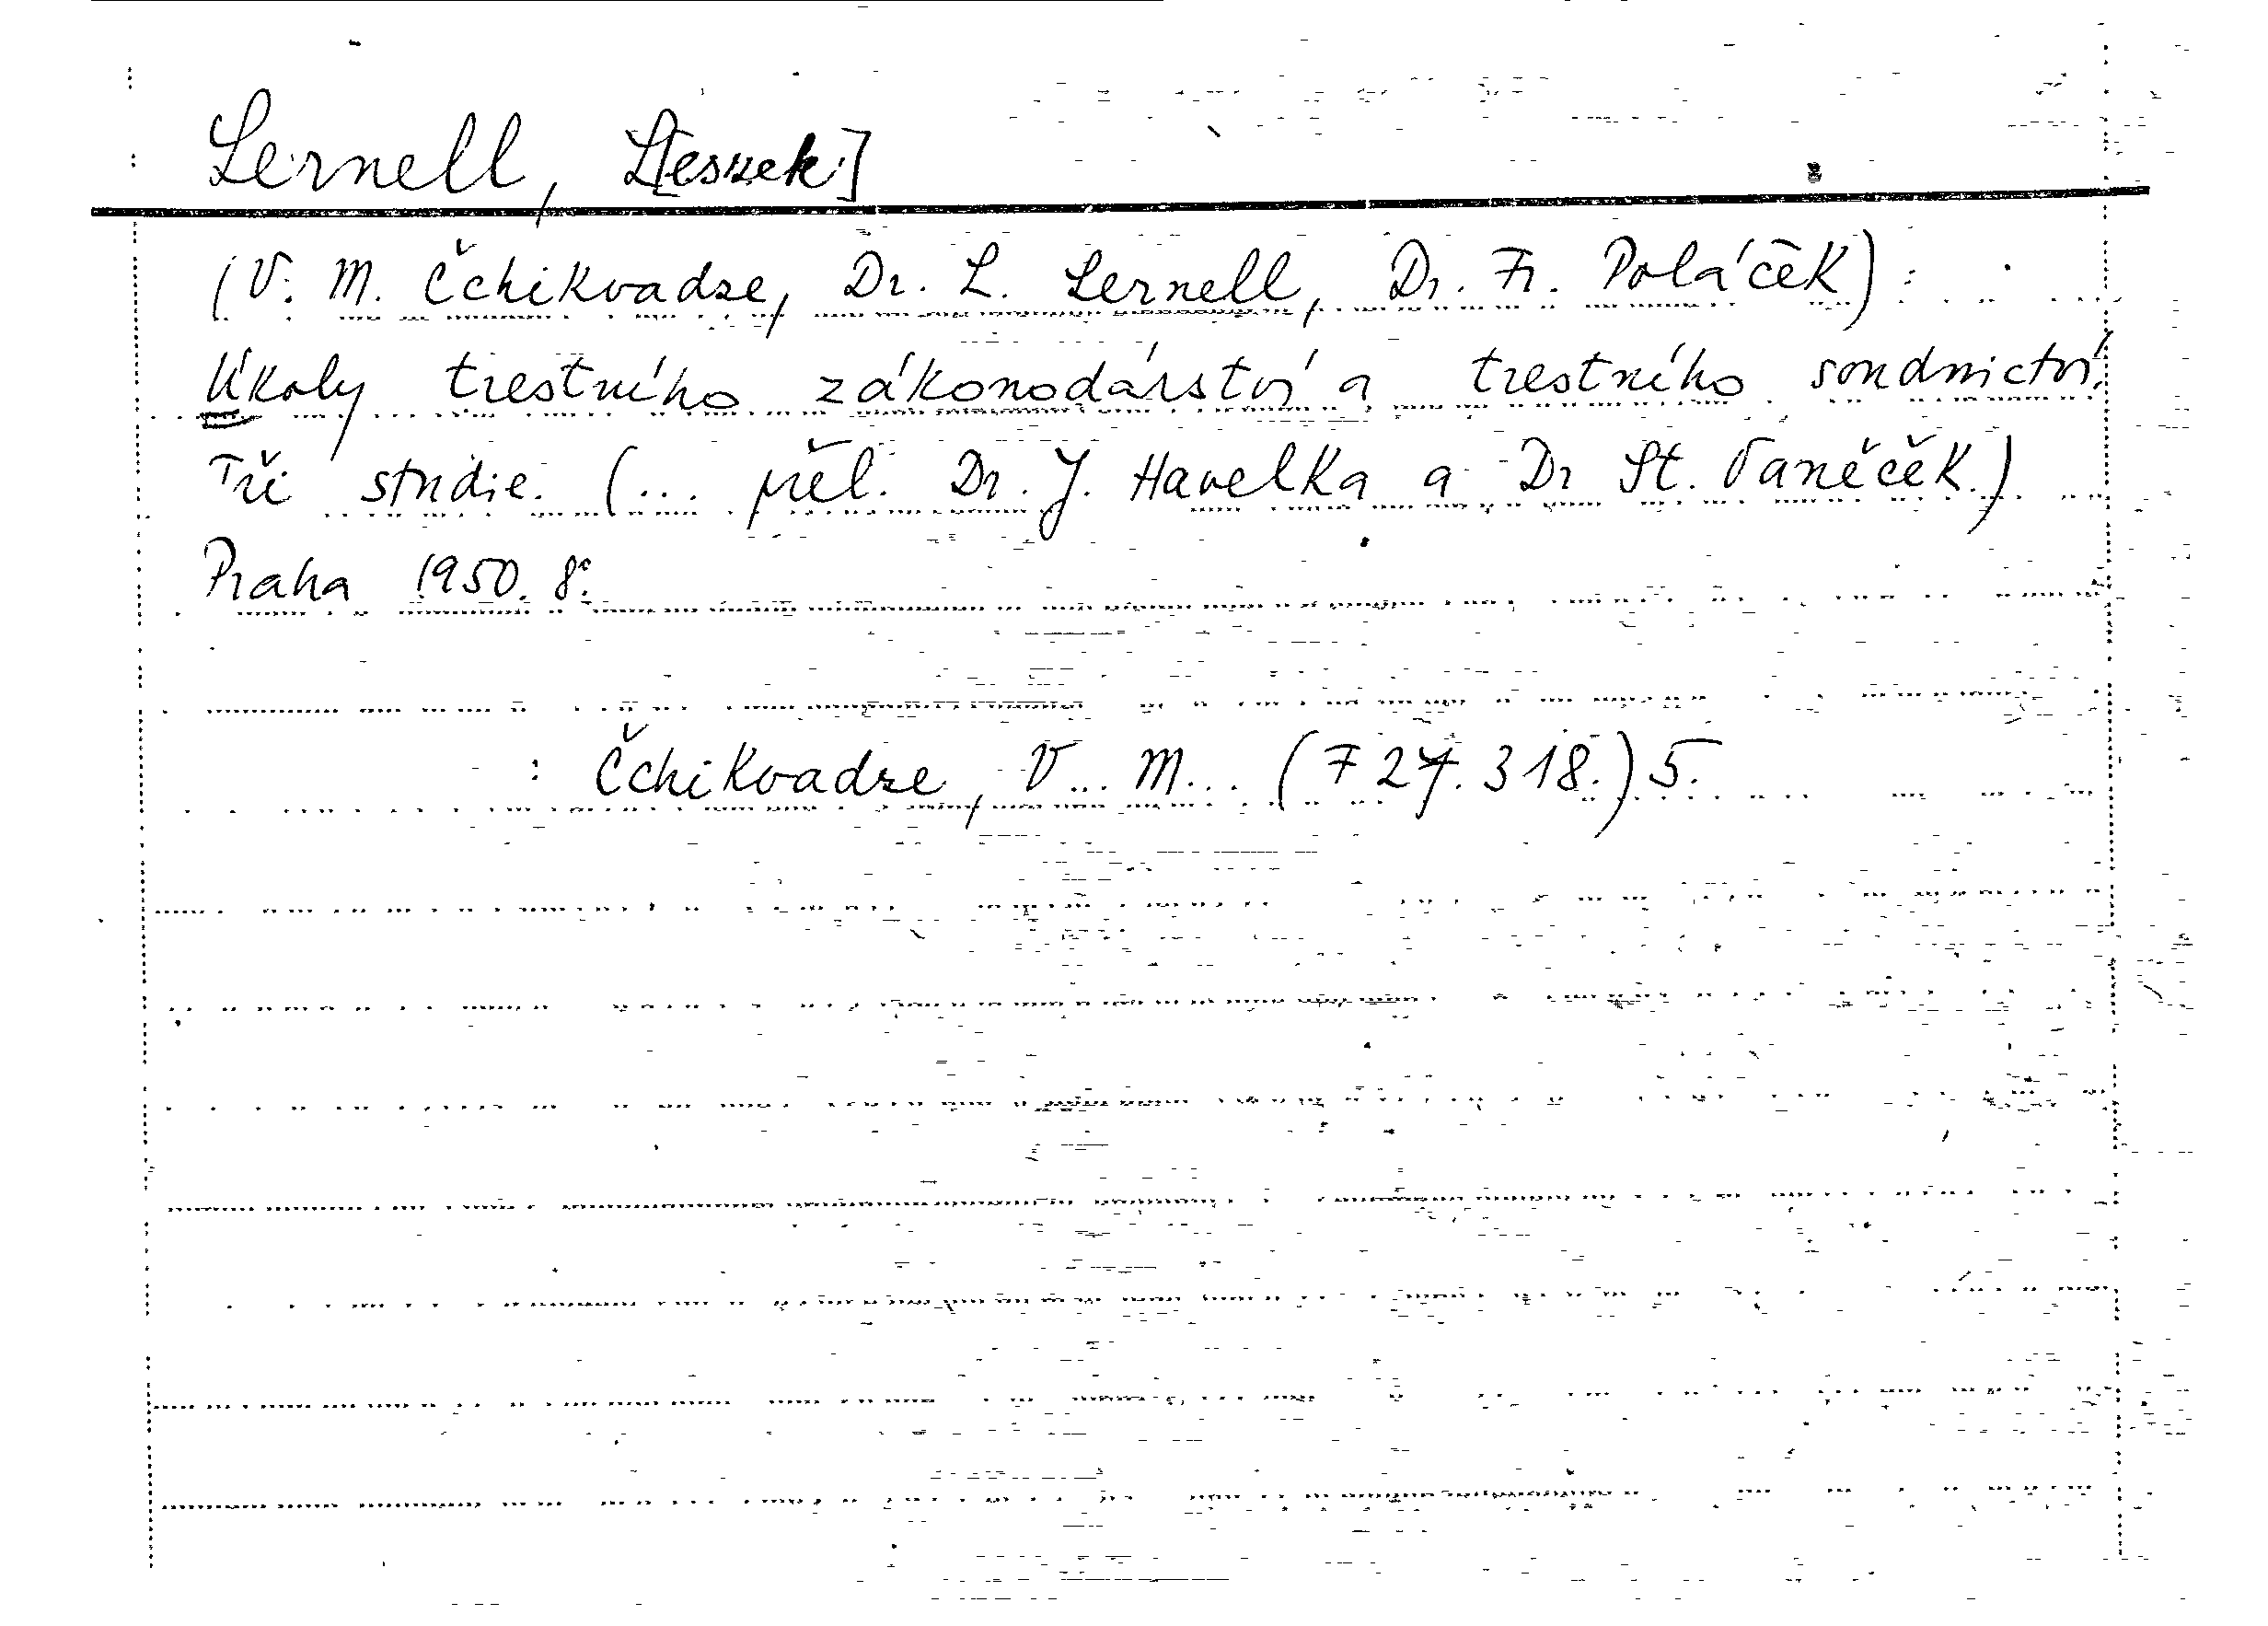 Lernell, L[eszek]
(V. M. Čchikvadze, Dr. L. Lernell, Dr. Fr. Poláček):
Úkoly trestního zákonodárství a trestního soudnictví.
Tři studie. (... přel. Dr. J. Havelka a Dr St. Vaněček.)
Praha 1950. 8°.
: Čchikvadze, V... M... (F 27.318.) 5.